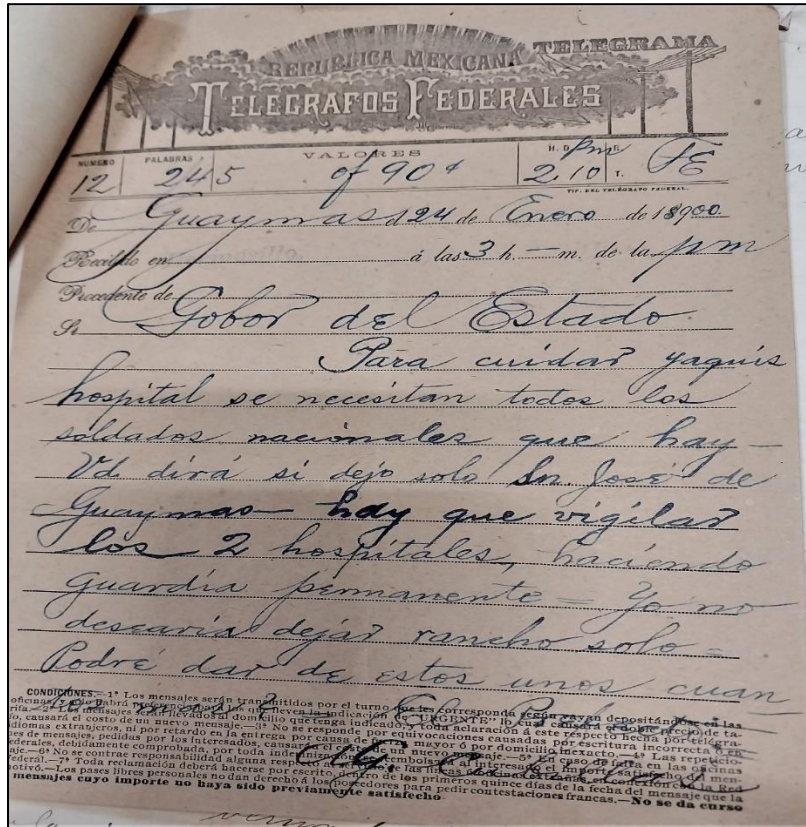 REPUBLICA MEXICANA TELEGRAMA
TELEGRAFOS FEDERALES
NUMERO PALABRAS VALORES H. D. R. T.
12 24 5 of 90¢ Pm 2.10 FE
TIP. DEL TELÉGRAFO FEDERAL.
De Guaymas el 24 de Enero de 18900.
Recibido en á las 3 h. — m. de la pm
Procedente de
Sr. Gobor del Estado.
Para cuidar yaquis
hospital se necesitan todos los
soldados nacionales que hay—
Vd dirá si dejo solo Sn. José de
Guaymas— hay que vigilar
los 2 hospitales, haciendo
guardia permanente = Yo no
desearia dejar rancho solo =
Podré dar de estos unos cuan
CONDICIONES.—1ª Los mensajes serán transmitidos por el turno que les corresponda según vayan depositándose en las
oficinas, y sólo habrá preferencia para los que lleven la indicación de "URGENTE" lo cual causará el doble precio de ta-
rifa.—2ª Los mensajes serán llevados al domicilio que tenga indicado, y toda aclaración á este respecto hecha por telégra-
fo, causará el costo de un nuevo mensaje.—3ª No se responde por equivocaciones causadas por escritura incorrecta ó en
idiomas extranjeros, ni por retardo en la entrega por causa de fuerza mayor ó por domicilio inexacto.—4ª Las repeticio-
nes de mensajes, pedidas por los interesados, causarán el costo de un nuevo mensaje.—5ª En caso de falta en las oficinas
federales, debidamente comprobada, por toda indemnización se reembolsará al interesado el importe satisfecho del men-
saje.—6ª No se contrae responsabilidad alguna respecto al servicio de las líneas de en conexión con la Red
Federal.—7ª Toda reclamación deberá hacerse por escrito, dentro de los primeros quince días de la fecha del mensaje que la
motivó.—Los pases libres personales no dan derecho á los poseedores para pedir contestaciones francas.—No se da curso
á mensajes cuyo importe no haya sido previamente satisfecho.